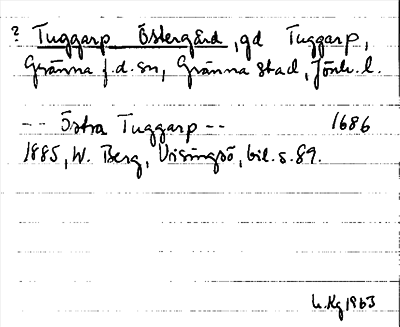 ? Tuggarp Östergård, gd Tuggarp,
Gränna f.d. sn, Gränna stad, Jönk. l.
-- Östra Tuggarp -- 1686
1885, W. Berg, Visingsö, bil. s. 89.
L. Kg 1963